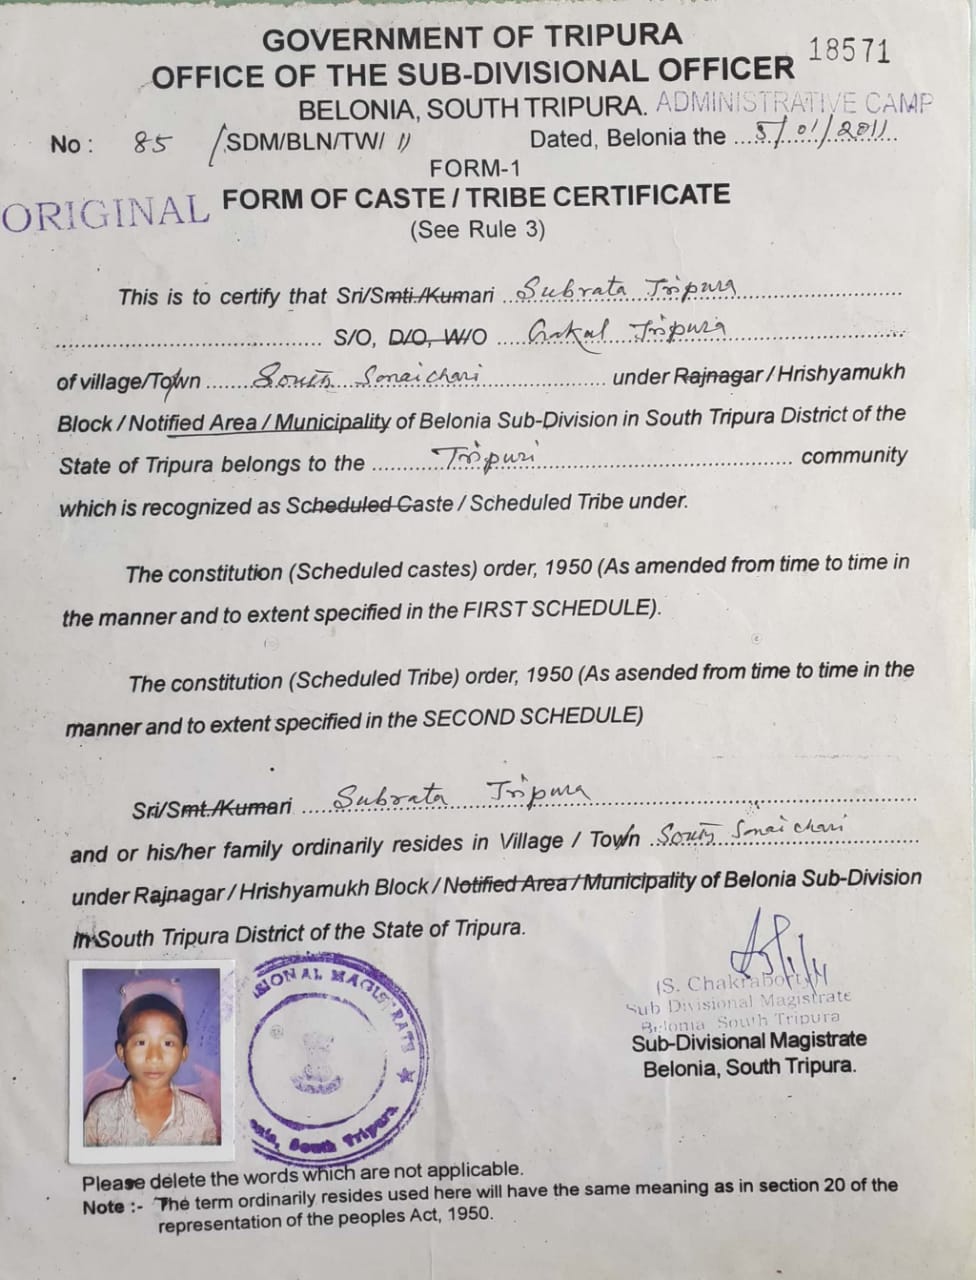 GOVERNMENT OF TRIPURA
18571
OFFICE OF THE SUB-DIVISIONAL OFFICER
BELONIA, SOUTH TRIPURA. ADMINISTRATIVE CAMP
No : 85 /SDM/BLN/TW/ 11 Dated, Belonia the 5/01/2011
FORM-1
ORIGINAL FORM OF CASTE / TRIBE CERTIFICATE
(See Rule 3)
This is to certify that Sri/Smti./Kumari Subrata Tripura
S/O, D/O, W/O Tripura
of village/Town South Sonaichari under Rajnagar / Hrishyamukh
Block / Notified Area / Municipality of Belonia Sub-Division in South Tripura District of the
State of Tripura belongs to the Tripuri community
which is recognized as Scheduled Caste / Scheduled Tribe under.
The constitution (Scheduled castes) order, 1950 (As amended from time to time in
the manner and to extent specified in the FIRST SCHEDULE).
The constitution (Scheduled Tribe) order, 1950 (As asended from time to time in the
manner and to extent specified in the SECOND SCHEDULE)
Sri/Smt./Kumari Subrata Tripura
and or his/her family ordinarily resides in Village / Town South Sonaichari
under Rajnagar / Hrishyamukh Block / Notified Area / Municipality of Belonia Sub-Division
in South Tripura District of the State of Tripura.
SIONAL MAGISTRATE ★
South Tripura
(S. Chakraborty)
Sub Divisional Magistrate
Belonia South Tripura
Sub-Divisional Magistrate
Belonia, South Tripura.
Please delete the words which are not applicable.
Note :- The term ordinarily resides used here will have the same meaning as in section 20 of the
representation of the peoples Act, 1950.